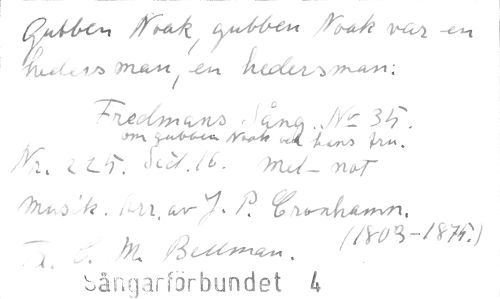 Gubben Noak, gubben Noak var en
hedersman, en hedersman:
Fredmans Sång. No 35.
om gubben Noak och hans fru.
Nr. 225. Sid. 16. mel- not
musik. Arr. av J. P. Cronhamn.
(1803-1875.)
C. M. Bellman.
Sångarförbundet 4